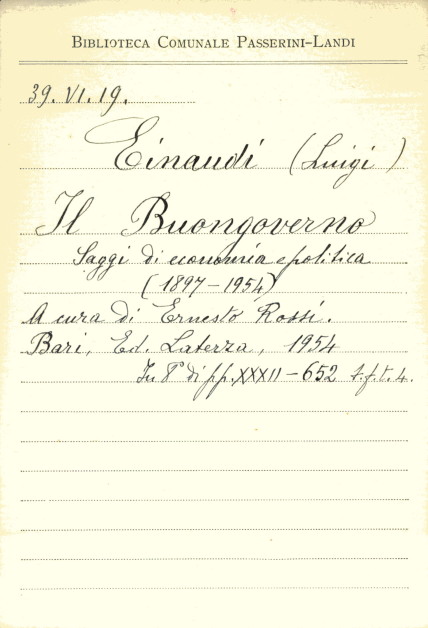 BIBLIOTECA COMUNALE PASSERINI-LANDI
39. VI. 19.
Einaudi (Luigi)
Il Buongoverno
Saggi di economia e politica
(1897-1954)
A cura di Ernesto Rossi.
Bari, Ed. Laterza, 1954
In 8° di pp. XXXII-652 t.f.t. 4.